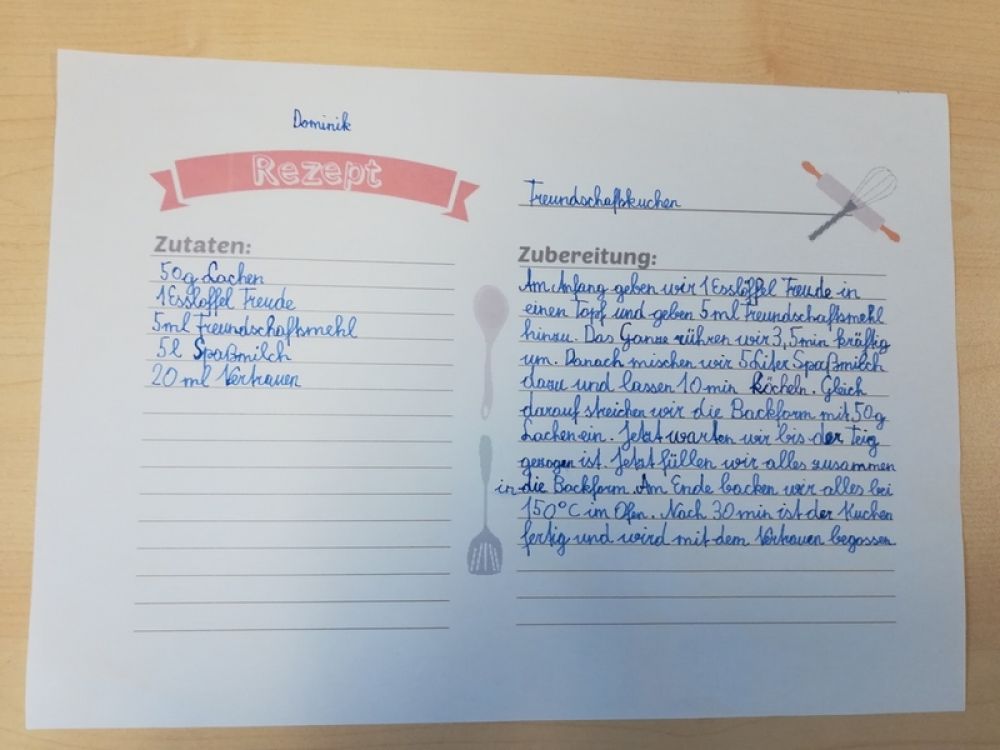 Dominik
Rezept
Zutaten:
50g Lachen
1 Esslöffel Freude
5ml Freundschaftsmehl
5l Spaßmilch
20 ml Vertrauen
Freundschaftskuchen
Zubereitung:
Am Anfang geben wir 1 Esslöffel Freude in
einen Topf und geben 5 ml Freundschaftsmehl
hinzu. Das Ganze rühren wir 3,5 min kräftig
um. Danach mischen wir 5 Liter Spaßmilch
dazu und lassen 10 min köcheln. Gleich
darauf streichen wir die Backform mit 50g
Lachen ein. Jetzt warten wir bis der Teig
gezogen ist. Jetzt füllen wir alles zusammen
in die Backform. Am Ende backen wir alles bei
150°C im Ofen. Nach 30 min ist der Kuchen
fertig und wird mit dem Vertrauen begossen.